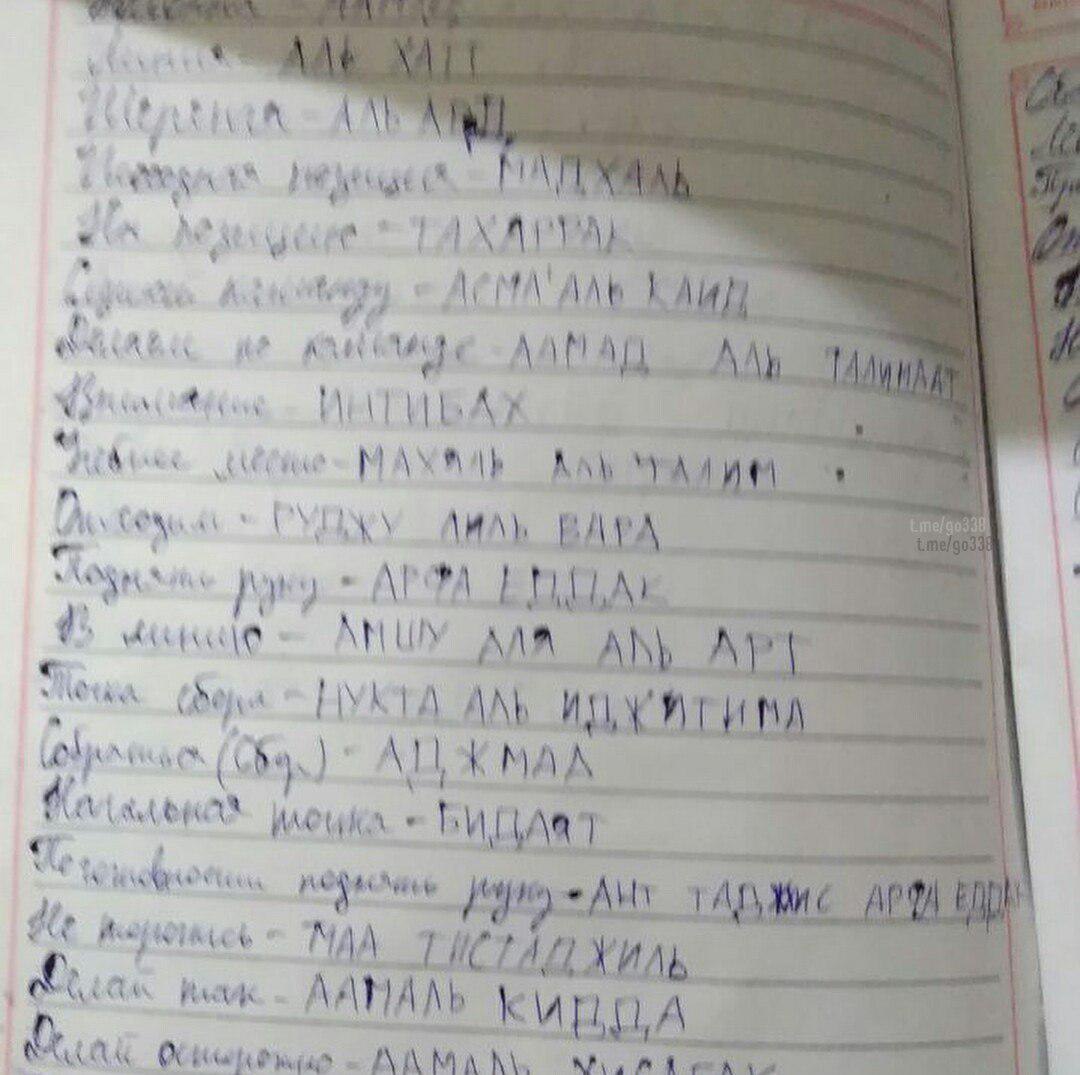 Колонна - ААМУД
Линия - АЛЬ ХАТТ
Шеренга - АЛЬ АРД
Исходная позиция - МАДХАЛЬ
На позицию - ТАХАРРАК
Слушать команду - АСМА'АЛЬ КАИД
Делаем по команде - ААМАД АЛЬ ТАЛИМААТ
Внимание - ИНТИБАХ
Учебное место - МАХАЛЬ АЛЬ ТАЛИМ
Отходим - РУДЖУ ЛИЛЬ ВАРА
Поднять руку - АРФА ЕДДАК
В линию - АМШУ АЛЯ АЛЬ АРТ
Точка сбора - НУКТА АЛЬ ИДЖИТИМА
Собраться (Сбор) - АДЖМАА
Начальная точка - БИДАЯТ
По готовности поднять руку - АНТ ТАДЖИС АРФА ЕДДАК
Не торопись - МАА ТИСТАДЖИЛЬ
Делай так - ААМАЛЬ КИДДА
Делай осторожно - ААМАЛЬ
t.me/go338
t.me/go338